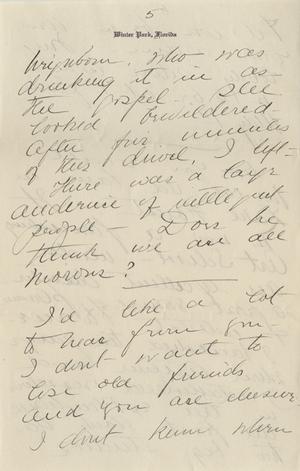 5
Winter Park, Florida
who was
drinking it in as
the gospel. She
looked bewildered
After five minutes
of this drivel, I left-
There was a large
audience of intelligent
people - Does he
think we are all
morons?
I'd like a lot
to hear from you
I don't want to
lose old friends
and you are
I don't know when